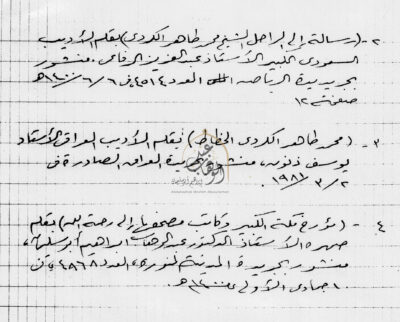 ٢- (رسالة إلى الراحل الشيخ محمد طاهر الكردي) بقلم الأديب
السعودي الكبير الأستاذ عبد العزيز الرفاعي. منشور
بجريدة الرياض العدد ٤٥١٤ في ٦/٦/١٤٠٠هـ
صفحة ١٢
٣- (محمد طاهر الكردي الخطاط) بقلم الأديب العراقي الأستاذ
يوسف ذنون، منشور بجريدة العراق الصادرة في
٢/٣/١٩٨١.
٤- (مؤرخ مكة الكبير وكاتب مصحفها إلى رحمة الله) بقلم
صهره الأستاذ الدكتور عبد الوهاب إبراهيم أبو سليمان،
منشور بجريدة المدينة المنورة، العدد ٤٨٦٨ في
١ جمادى الأولى ١٤٠٠هـ.